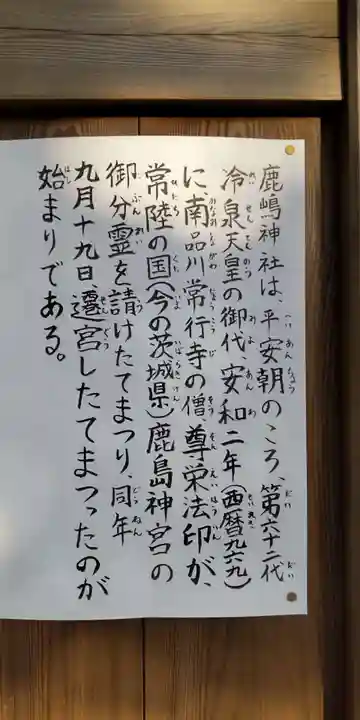 鹿嶋神社は、平安朝のころ、第六十二代
冷泉天皇の御代、安和二年(西暦九六九)
に、南品川常行寺の僧尊栄法印が、
常陸の国(今の茨城県)鹿島神宮の
御分霊を請けたてまつり、同年
九月十九日、遷宮したてまつったのが
始まりである。